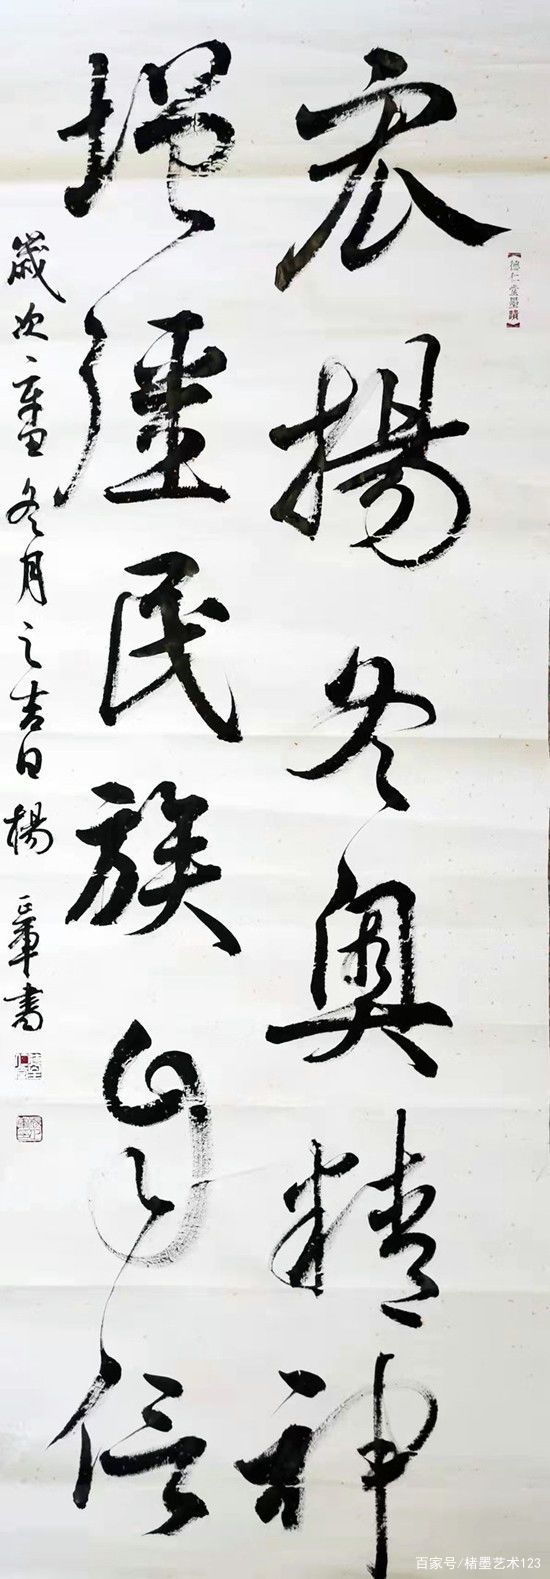 宏揚冬奧精神
【德仁堂墨蹟】
增彊民族自信
歲次辛丑冬月之吉日楊正軍書
百家号/楮墨艺术123